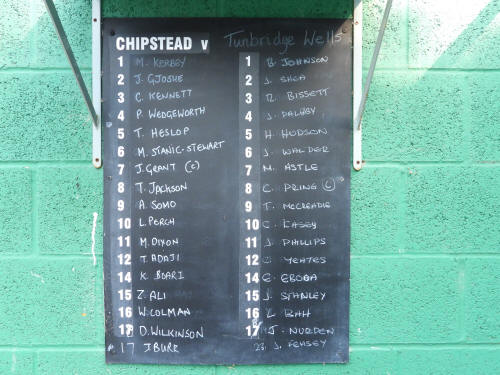 CHIPSTEAD v Tunbridge Wells
1 M. KERBEY 1 B. JOHNSON
2 J. GJOSHE 2 J. SHEA
3 C. KENNETT 3 R. BISSETT
4 P. WEDGEWORTH 4 J. DALHBY
5 T. HESLOP 5 H. HUDSON
6 M. STANIC-STEWART 6 J. WALDER
7 J. GRANT (C) 7 M. ASTLE
8 T. JACKSON 8 C. PRING (C)
9 A. SOMO 9 T. MCCREADIE
10 L. PERCH 10 C. CASEY
11 M. DIXON 11 J. PHILLIPS
12 T. ADAJI 12 C. YEATES
14 K. BOARI 14 E. EBODA
15 Z. ALI 15 J. STANLEY
16 W. COLMAN 16 L. BAH
18 D. WILKINSON 17 J. NURDEN
17 J BURR 23. J. FEHSEY